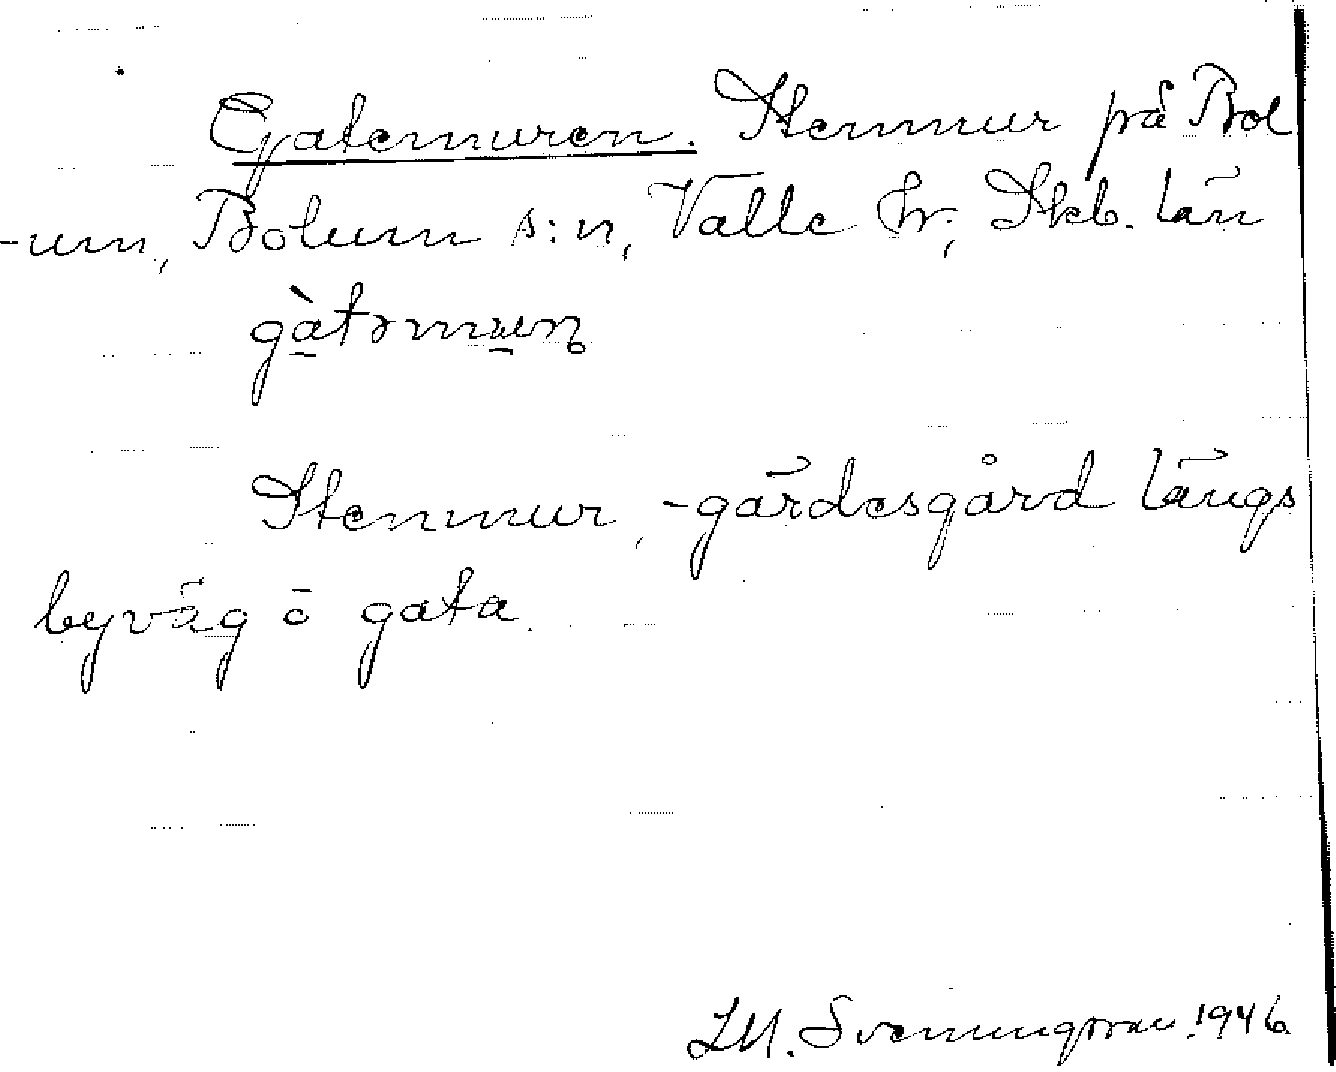 Gatemuren. Stenmur på Bol
-um, Bolum s:n, Valle hr; Skb. län
gàtəmuɳ
Stenmur, -gärdesgård längs
byväg ö gata.
J.M. Svenungsson 1946